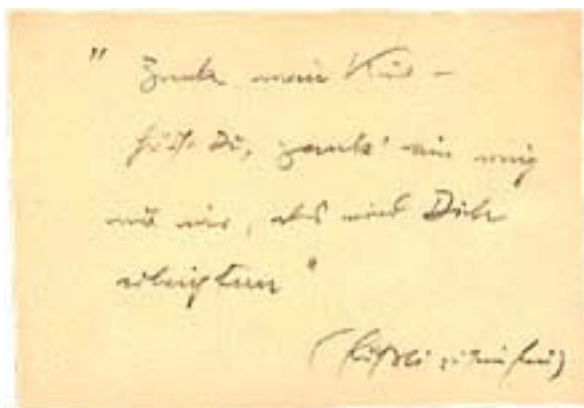 " Zanke mein Kind –
hörst Du, zanke' ein wenig
mit mir, das wird Dich
erleichtern "